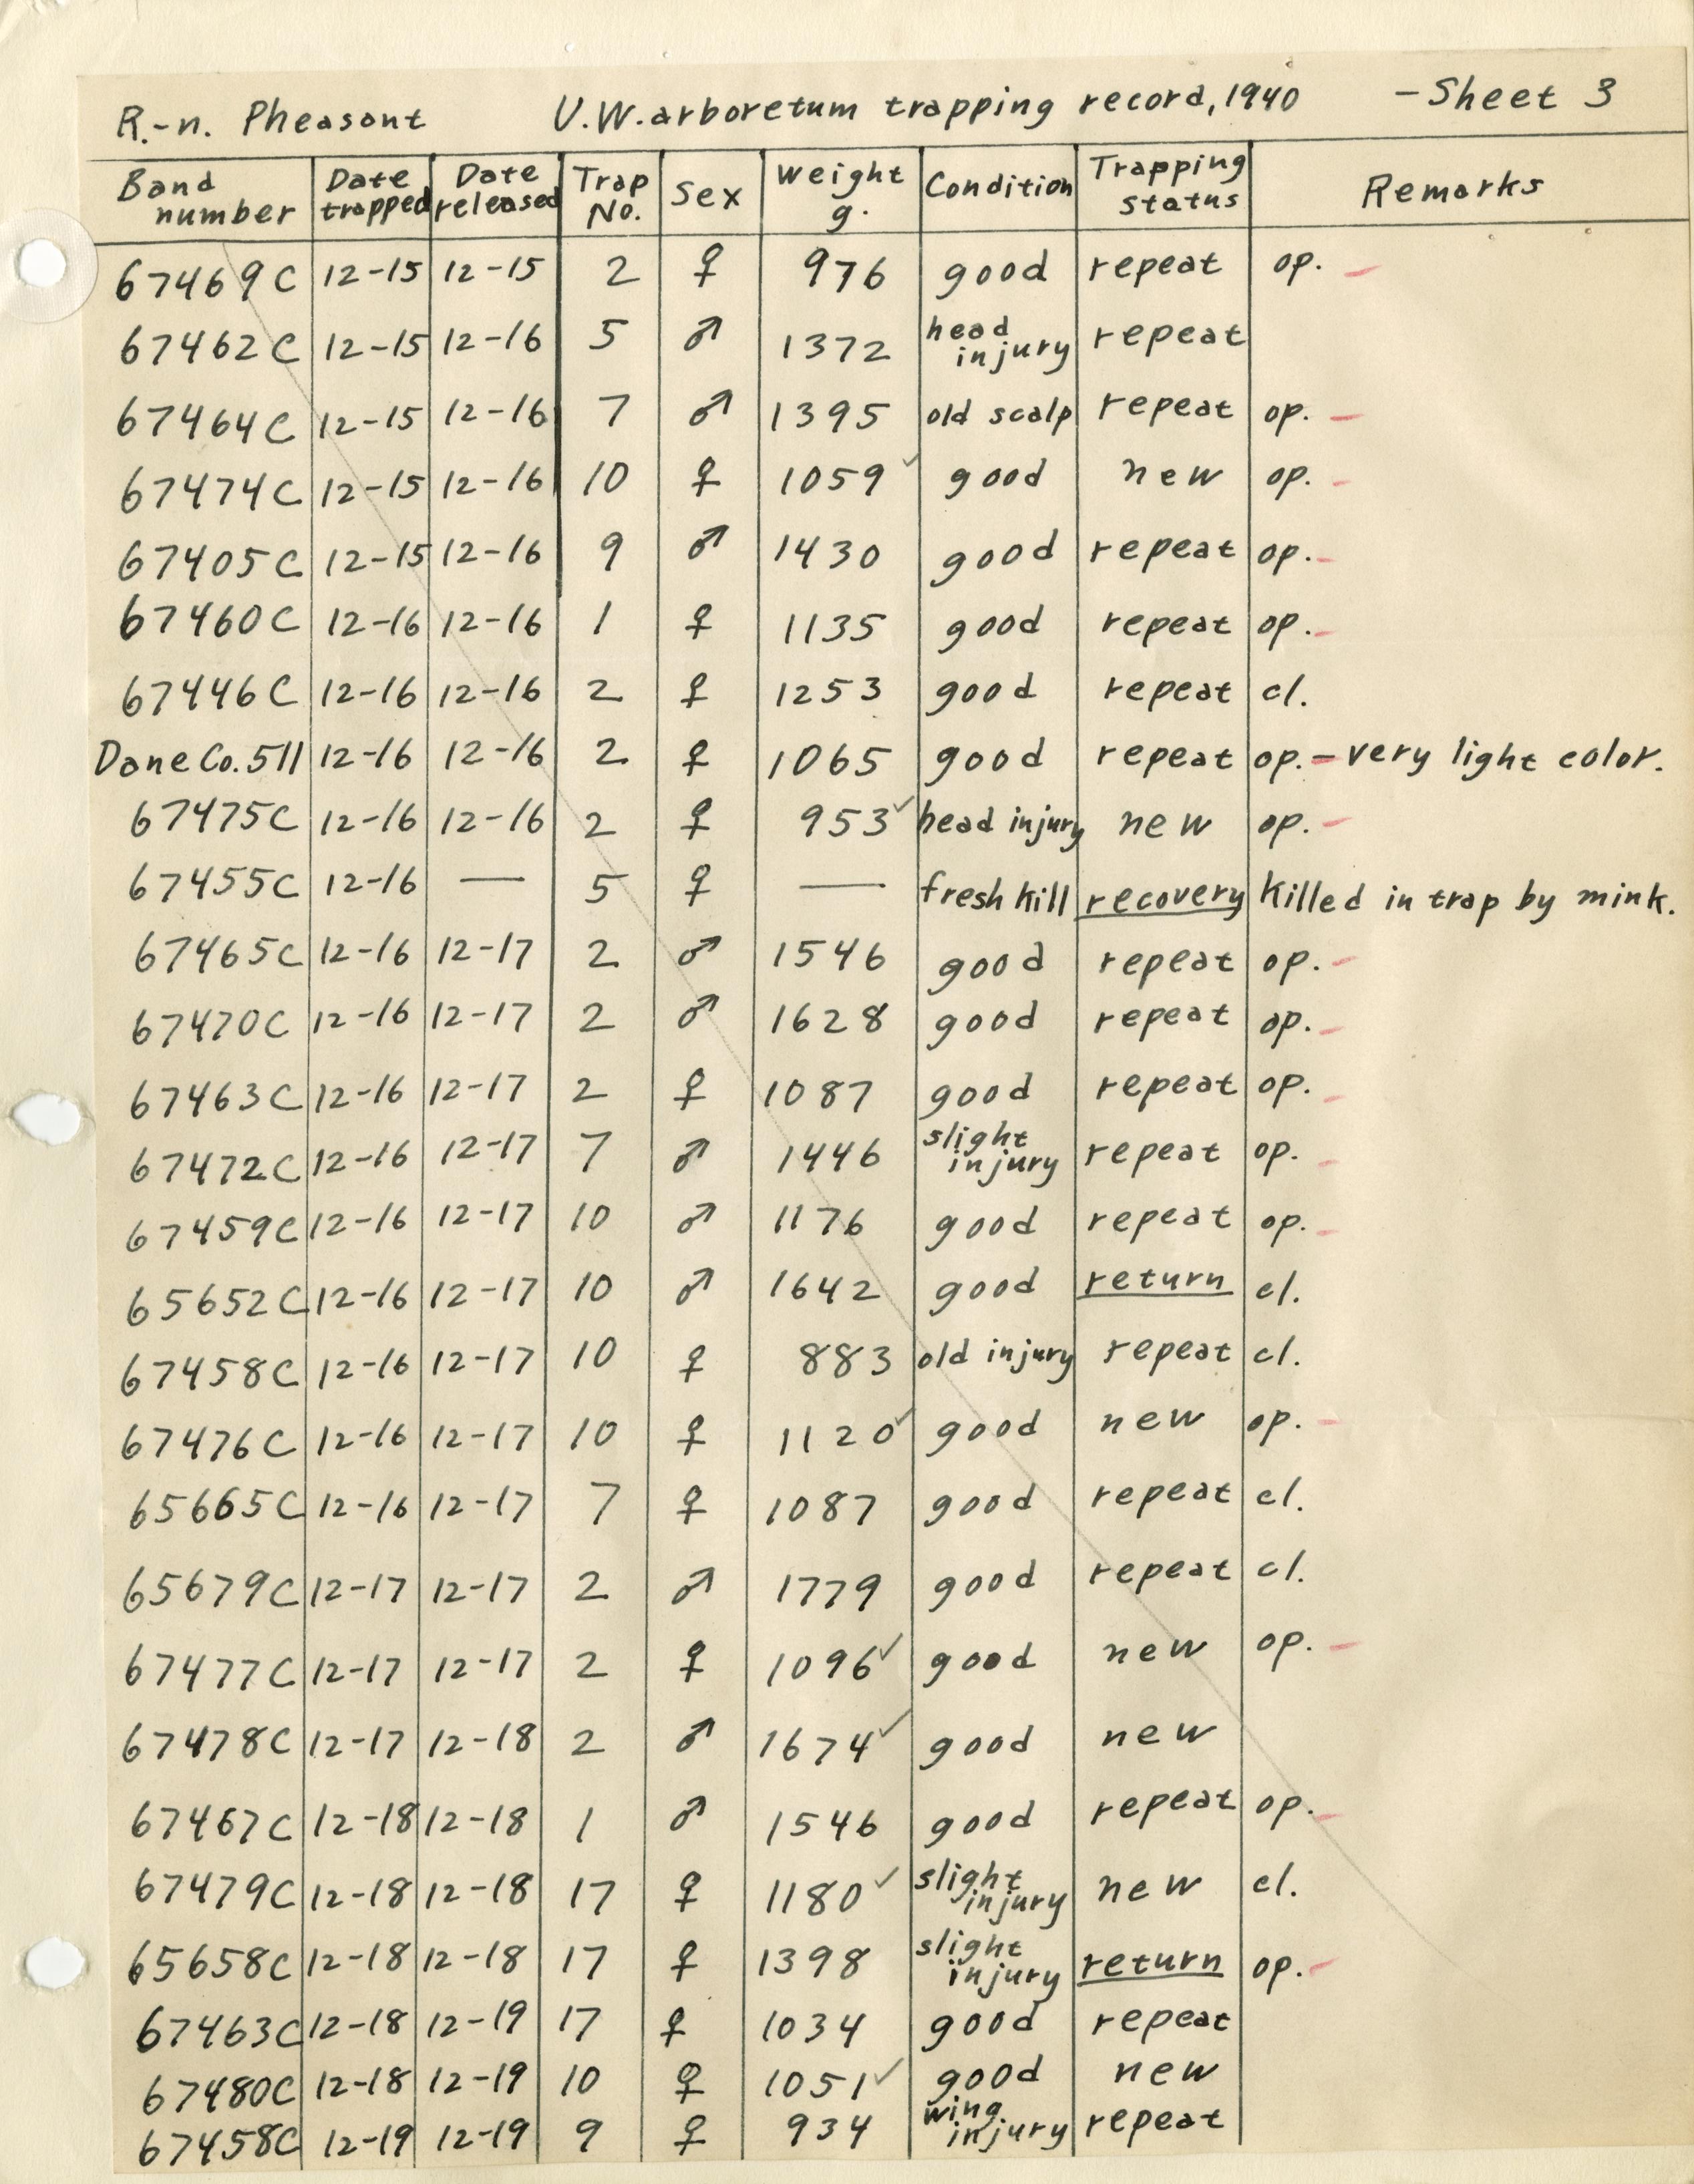 R.-n. Pheasant U.W. arboretum trapping record, 1940 - Sheet 3
Band number Date trapped Date released Trap No. Sex Weight g. Condition Trapping status Remarks
67469C 12-15 12-15 2 ♀ 976 good repeat op. -
67462C 12-15 12-16 5 ♂ 1372 head injury repeat
67464C 12-15 12-16 7 ♂ 1395 old scalp repeat op. -
67474C 12-15 12-16 10 ♀ 1059 ✓ good new op. -
67405C 12-15 12-16 9 ♂ 1430 good repeat op. -
67460C 12-16 12-16 1 ♀ 1135 good repeat op. -
67446C 12-16 12-16 2 ♀ 1253 good repeat cl.
Dane Co. 511 12-16 12-16 2 ♀ 1065 good repeat op. - very light color.
67475C 12-16 12-16 2 ♀ 953 ✓ head injury new op. -
67455C 12-16 — 5 ♀ — fresh kill recovery Killed in trap by mink.
67465C 12-16 12-17 2 ♂ 1546 good repeat op. -
67470C 12-16 12-17 2 ♂ 1628 good repeat op. -
67463C 12-16 12-17 2 ♀ 1087 good repeat op. -
67472C 12-16 12-17 7 ♂ 1446 slight injury repeat op. -
67459C 12-16 12-17 10 ♂ 1176 good repeat op. -
65652C 12-16 12-17 10 ♂ 1642 good return cl.
67458C 12-16 12-17 10 ♀ 883 old injury repeat cl.
67476C 12-16 12-17 10 ♀ 1120 ✓ good new op. -
65665C 12-16 12-17 7 ♀ 1087 good repeat cl.
65679C 12-17 12-17 2 ♂ 1779 good repeat cl.
67477C 12-17 12-17 2 ♀ 1096 ✓ good new op. -
67478C 12-17 12-18 2 ♂ 1674 ✓ good new
67467C 12-18 12-18 1 ♂ 1546 good repeat op. -
67479C 12-18 12-18 17 ♀ 1180 ✓ slight injury new cl.
65658C 12-18 12-18 17 ♀ 1398 slight injury return op. -
67463C 12-18 12-19 17 ♀ 1034 good repeat
67480C 12-18 12-19 10 ♀ 1051 ✓ good new
67458C 12-19 12-19 9 ♀ 934 wing injury repeat